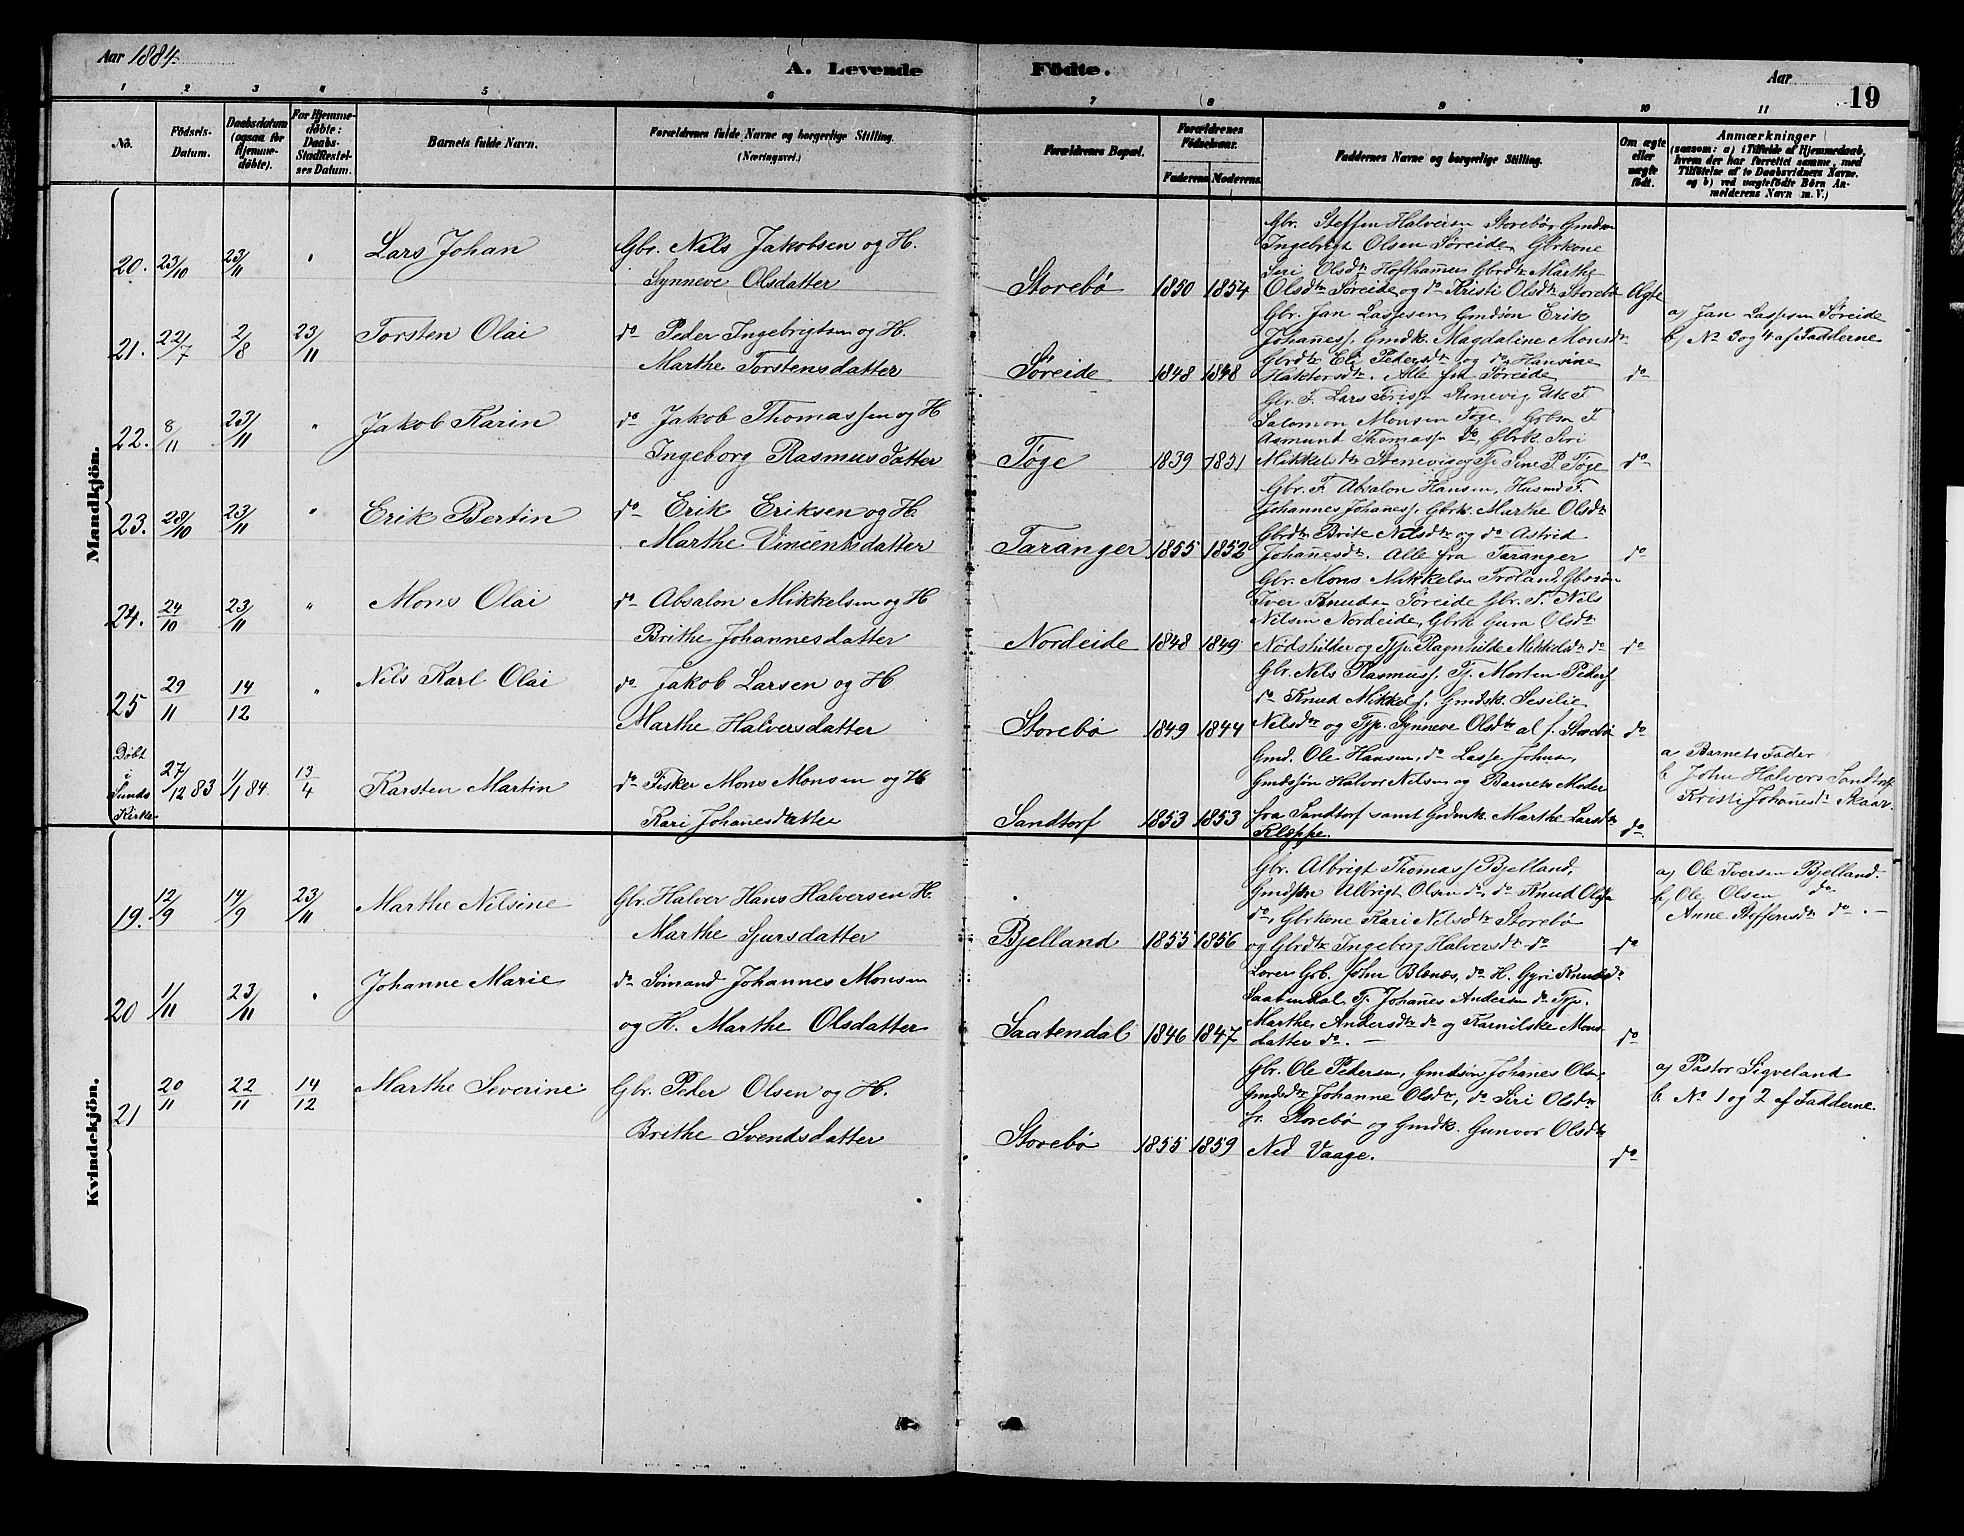 Aar 1884.
A. Levende Födte.
Aar
19
1 2 3 4 5 6 7 8 9 10 11
No. Födsels-Datum. Daabsdatum (ogsaa for Hjemme-döbte). For Hjemme-döbte: Daabs-Stadfæstel-ses Datum. Barnets fulde Navn. Forældrenes fulde Navne og borgerlige Stilling. (Næringsvei.) Forældrenes Bopæl. Forældrenes Födselsaar. Faderens. Moderens. Faddernes Navne og borgerlige Stilling. Om ægte eller uægte födt. Anmærkninger (saasom: a) i Tilfælde af Hjemmedaab, hvem der har forrettet samme, med Tilföielse af to Daabsvidners Navne, og b) ved uægtefödte Börn An-melderens Navn m. V.)
Mandkjön.
20. 23/10 23/11 " Lars Johan
Gbr. Nils Jakobsen og H.
Synneve Olsdatter
Storebø 1850 1854
Gbr. Steffen Halversen Storebø, Gmdsøn
Ingebrigt Olsen Søreide, Gbrkone
Siri Olsdtr Hofthamer Gbrdtr Marthe
Olsdtr Søreide og do Kristi Olsdtr Storebø Ægte
21. 22/7 2/8 23/11 Torsten Olai
do Peder Ingebrigtsen og H.
Marthe Torstensdatter
Søreide 1848 1848
Gbr. Jan Lassesen, Gmdsøn Erik
Johannesf. Gmdk. Magdaline Monsdtr
Gbrdtr Eli Pedersdtr og do Hansine
Haktorsdtr. Alle fra Søreide do
a) Jan Lassesen Søreide
b) No 3 og 4 af Fadderne
22. 8/11 23/11 " Jakob Karin
do Jakob Thomassen og H
Ingeborg Rasmusdatter
Tøge 1839 1851
Gbr. F. Lars Stenevig
Salomon Monsen Tøge, Gbsøn F
Aamund Thomass. do, Gbrk. Siri
Mikkelsdtr Stenevig og Tp. Sine P. Tøge do
23. 28/10 23/11 " Erik Bertin
do Erik Eriksen og H.
Marthe Vincentsdatter
Taranger 1855 1852
Gbr. F. Absalon Hansen, Husmd F.
Johannes Johanesf. Gbrk. Marthe Olsdtr
Gbrdtr Brite Nilsdtr og do Astrid
Johanesdtr. Alle fra Taranger do
24. 24/10 23/11 " Mons Olai
do Absalon Mikkelsen og H
Brithe Johannesdatter
Nordeide 1848 1849
Gbr. Mons Mikkelsen Froland, Gbrsøn
Iver Knudsn Søreide Gbr. F. Nils
Nilsen Nordeide, Gbrk Gura Olsdtr
og Tjp. Ragnhilde Mikkelsdtr do do
25 29/11 14/12 " Nils Karl Olai
do Jakob Larsen og H
Marthe Halversdatter
Storebø 1849 1844
Gbr. Nils Rasmusf. Tj. Morten Pedersf
do Knud Mikkelf. Gmdsk. Sesilie
Nilsdtr og Tjp. Synneve Olsdtr al. f. Storebø do
Døbt i Sunds Kirke 27/12 83 1/1 84. 13/4 Karsten Martin
do Fisker Mons Monsen og H
Kari Johanesdatter
Sandtorf 1853 1853
Gmd. Ole Hansen, do Lasse Johnsen,
Gmdssøn Halvor Nilsen og Barnets Moder
fra Sandtorf samt Marthe Larsdtr
Kleppe. do
a Barnets Fader
b. John Halvers. Sandtorf
Kristi Johanesdtr Skaar.
Kvindekjön.
19. 12/9 14/9 23/11 Marthe Nilsine
Gbr. Halver Hans Halversen H.
Marthe Sjursdatter
Bjelland 1855 1856
Gbr. Albrigt Thomasf Bjelland,
Gmdsøn Albrigt Olsen do, do Knud Olsen
do, Gbrkone Kari Nilsdtr Storebø
og Gbrdtr Ingeborg Halversdtr do do
a) Ole Iversen Bjelland.
b) Ole Olsen do
Anne Steffensdtr do. —
20 1/11 23/11 " Johanne Marie
do Sømand Johannes Monsen
og H. Marthe Olsdatter
Saatendal 1846 1847
Lærer Grb. John Blenes, do H. Gyri Knudsdtr
Saatendal, Tj. Johanes Andersen do Tjp.
Marthe Andersdtr do og Karnilske Mons-
datter do. — do
21 20/11 22/11 14/12 Marthe Severine
Gbr. Peder Olsen og H.
Brithe Svendsdatter
Storebø 1855 1859
Gbr. Ole Pedersen, Gmdsøn Johanes Olsn,
Gmdsdtr Johanne Olsdtr, do Siri Olsdtr
fr. Storebø og Gmdk. Gunvor Olsdtr
Ned Vaage. do
a) Pastor Sigveland
b. No 1 og 2 af Fadderne.